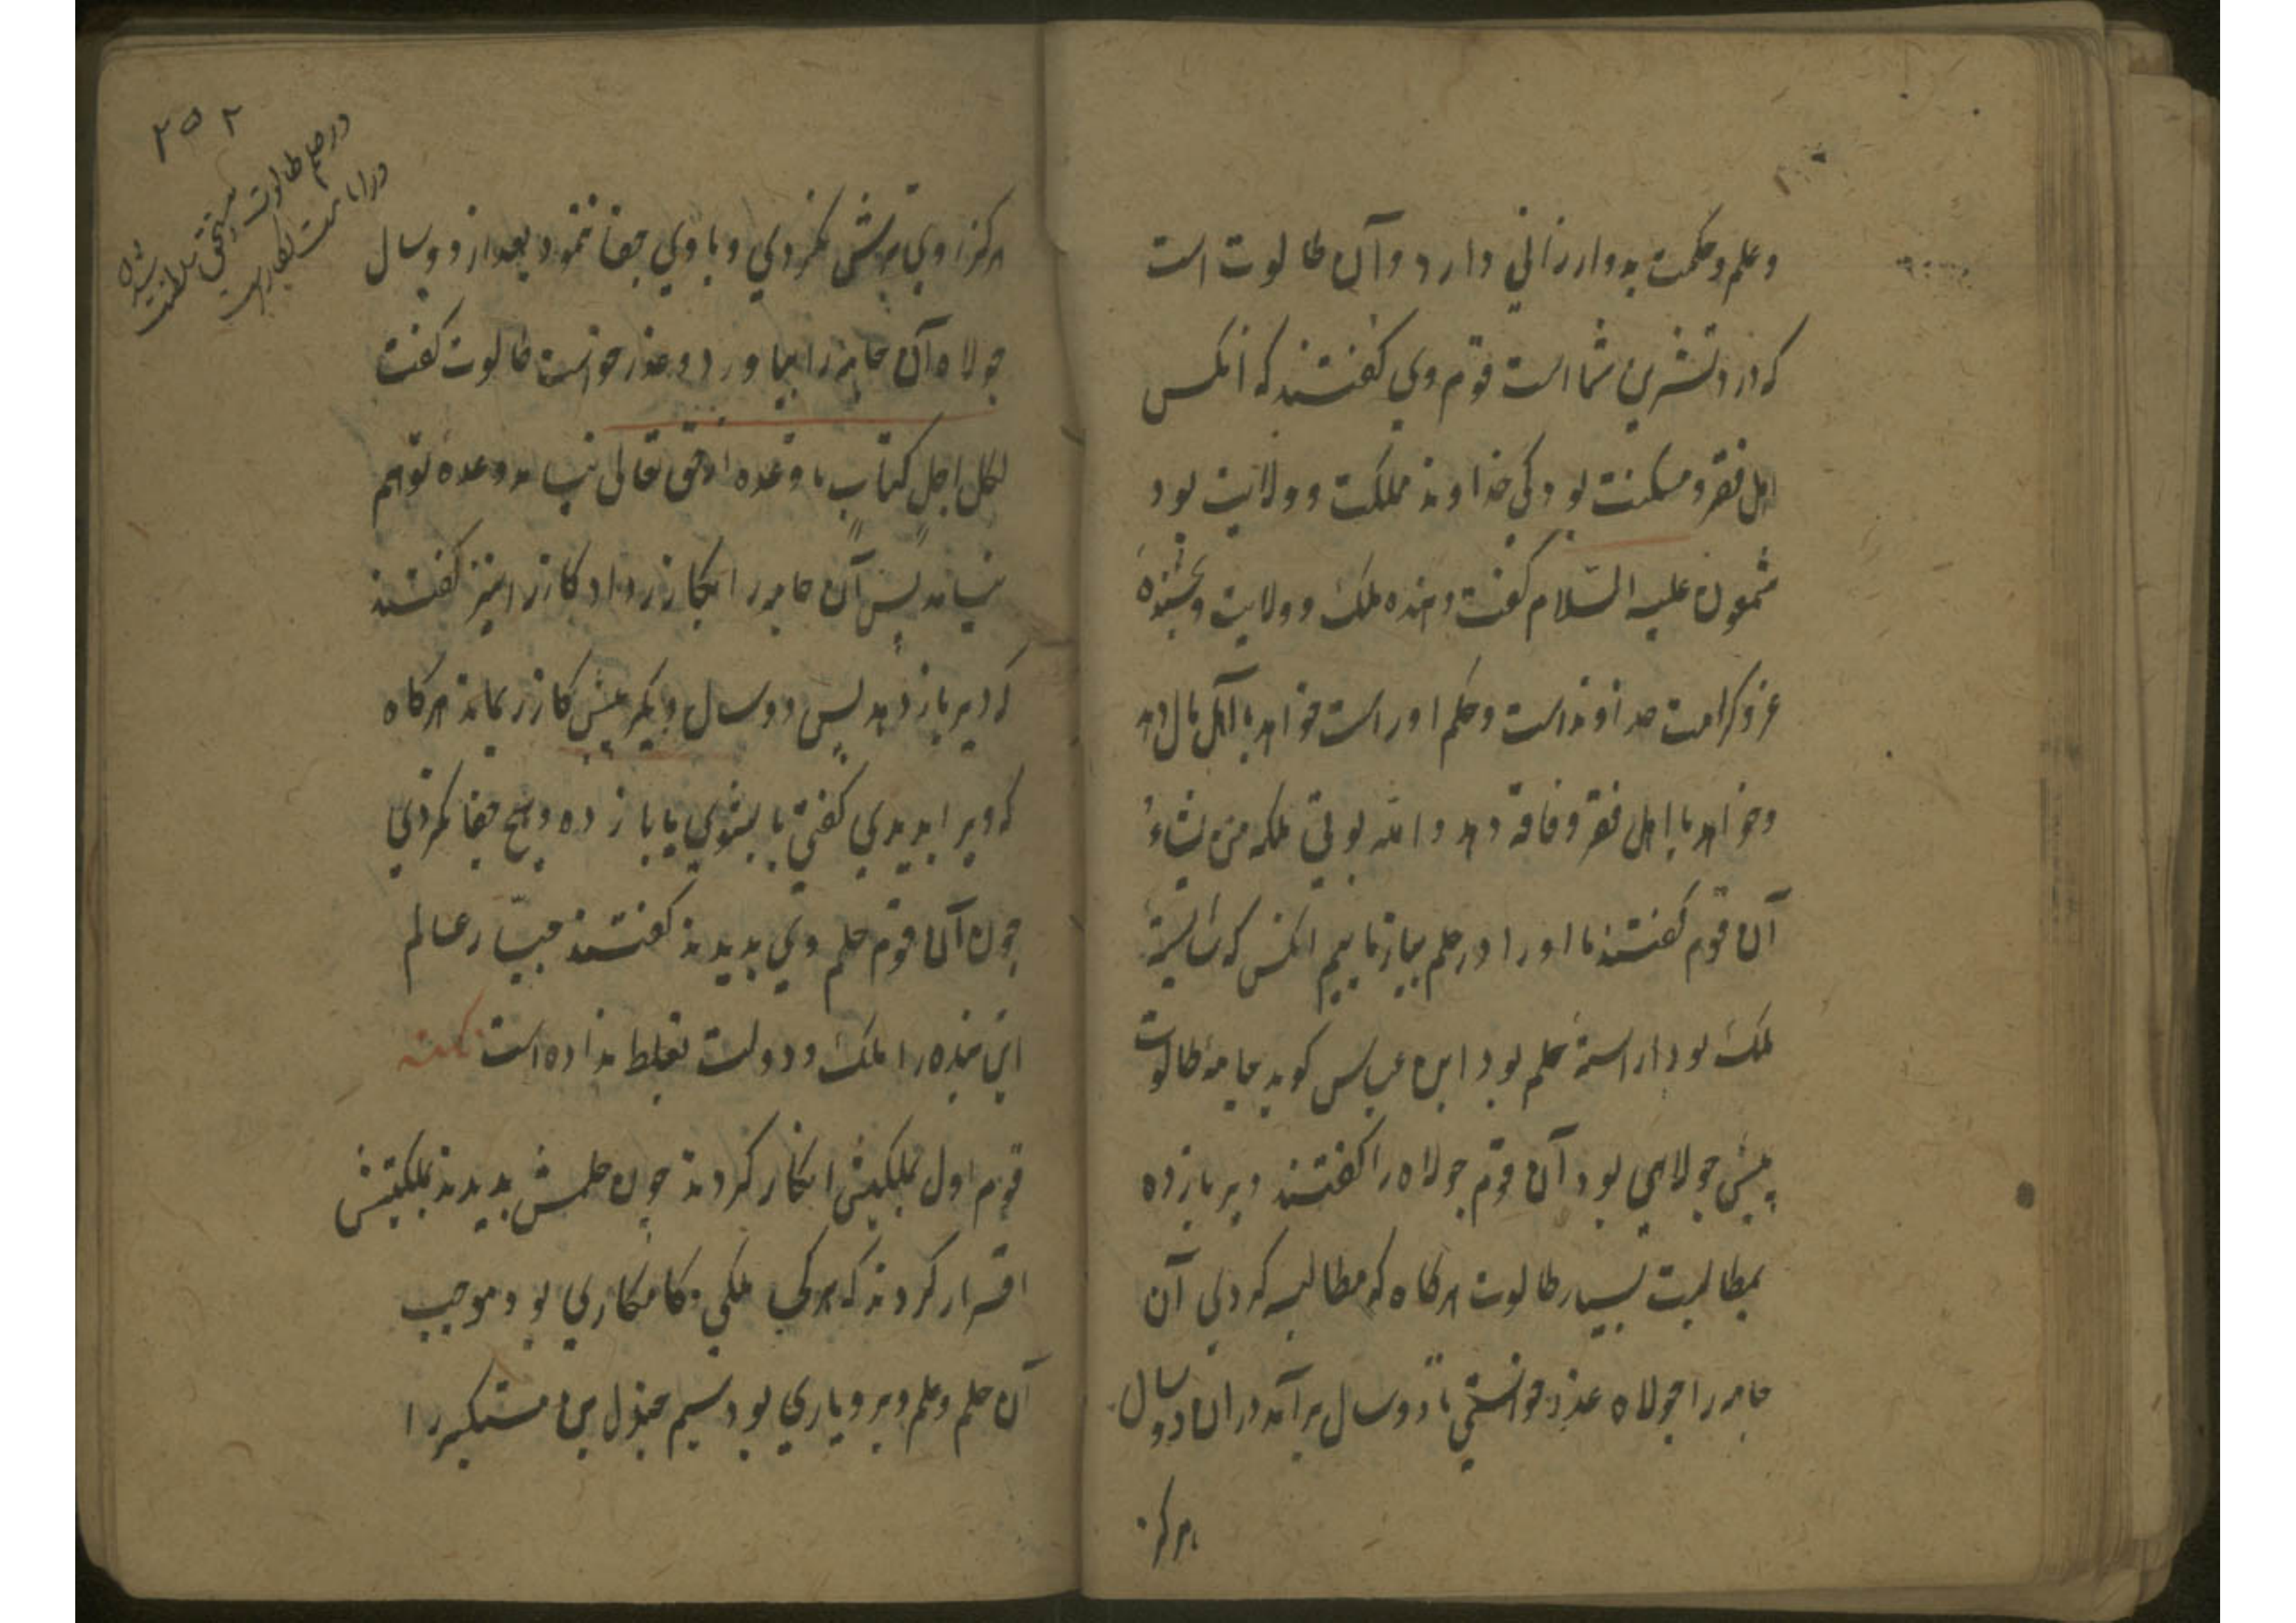 وعلم وحکمت بدو ارزانی دارد و آن طالوت است
که در د تشرین شما است قوم وی کفتند که انکس
اهل فقر و مسکنت بود کی خداوند مملکت و ولایت بود
شمعون علیه السلام کفت دهنده ملک و ولایت و بخشنده
عز و کرامت خداوند است و حکم او راست خواهد با اهل مال دهد
وخواهد با اهل فقر و فاقه دهد والله یوتی ملکه من یشاءُ
آن قوم کفتند ما او را در حلم بیازماییم انکس که شایستهٔ
ملک بود اراسته بحلم بود ابن عباس کوید جامهٔ طالوت
پیش جولاهی بود آن قوم جولاه را کفتند دیر باز ده
بمطالبت بسیار طالوت هرکاه که مطالبه کردی آن
جامه را جولاه عذر خواستی تا دو سال برآمد در ان دو سال
هرکز
۲۵۲
در حلم طالوت مستحق سلطنت شدن
هرکز او پرسش نکردی و با وی جفا ننمود بعد از دو سال
جولاه آن جامه را بیاورد و عذر خواست طالوت کفت
لکل اجل کتاب تا وعده از حق تعالی نیامد وعده تو هم
نیامد پس آن جامه را بکازر داد کازر را نیز کفتند
که دیر باز دهد پس دو سال دیکر پیش کازر بماند هرکاه
که ویرا بدیدی کفتی یا بشوی یا باز ده و هیچ جفا نکردی
چون آن قوم حلم وی بدیدند کفتند جبار عالم
این بنده را ملک و دولت بغلط نداده است نکته
قوم اول بملکیتش انکار کردند چون حلمش بدیدند بملکیتش
اقرار کردند که هرکجا ملکی و کامکاری بود موجب
آن حلم و علم و بردباری بود